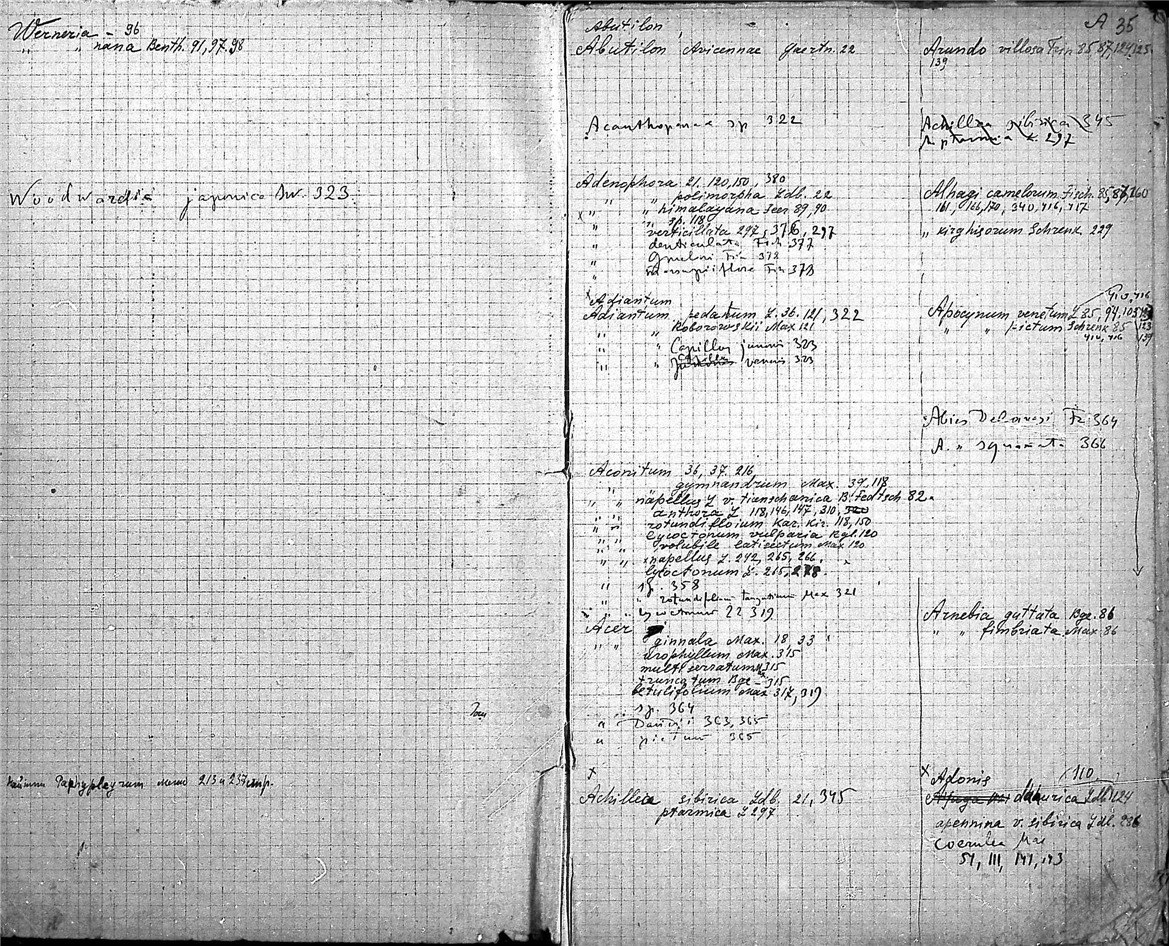 Werneria - 96
" " nana Benth. 91, 97. 98
Woodwardia japonica Sw. 323.
213 и 237 стр.
A 35
Abutilon
Abutilon Avicennae Gaertn. 22
Acanthopanax sp 322
Adenophora 21. 120, 150, 380
" " polimorpha Ldb. 22
" " himalayana Feer 89, 90
x " " sp. 118
" verticillata 292, 376, 297
" denticulata Fisch 377
" Gmelini Fisch 378
" 378
x Adiantum
Adiantum pedatum L. 36. 121, 322
" " Roborowskii Max 121
" " Capillus junonis 323
" " Capillus veneris 323
Aconitum 36, 37. 216
gymnandrum Max. 39, 118
" " napellus L v. tianschanica B. Fedtsch 82.
" " anthora L 118, 146, 147, 310,
" " rotundifolium Kar. Kir. 118, 150
" " lycoctonum vulparia Rgl. 120
" " volubile latisectum Max 120
" " x napellus L. 242, 265, 266
lycoctonum L. 265, 278
" sp. 358
" " rotundifolium tanguticum Max 321
" lycoctonum 319
Acer
" " ginnala Max. 18 33
urophyllum Max. 315
multiserratum Max 315
truncatum Bge - 315
betulifolium Max 317, 319
" sp. 364
" Davidi 363, 365
" pictum 365
x
Achillea sibirica Ldb. 21, 345
ptarmica L 297
Arundo villosa Trin 85 87, 124, 125
139
Achillea sibirica 345
A. ptarmica L. 297
Alhagi camelorum Fisch. 85, 87, 160
161, 166, 170, 340, 416, 417
" kirghisorum Schrenk 229
410, 416
Apocynum venetum L 85, 94, 105
" " pictum Schrenk 85 123
410, 416 139
Abies Delavayi Fr 364
A. " squamata 366
Arnebia guttata Bge. 86
" " fimbriata Max 86
x Adonis 110
dahurica Ldb 124
apennina v. sibirica Ldl. 286
coerulea Max
51, 111, 141, 143